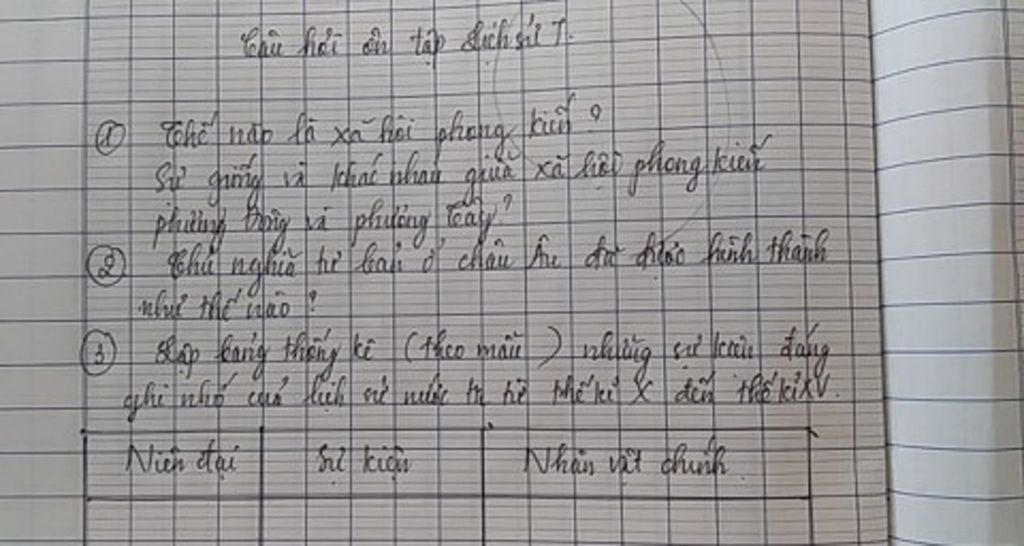 Câu hỏi ôn tập lịch sử 7.
① Thế nào là xã hội phong kiến?
Sự giống và khác nhau giữa xã hội phong kiến
phương Đông và phương Tây?
② Chủ nghĩa tư bản ở châu Âu đã được hình thành
như thế nào?
③ Lập bảng thống kê (theo mẫu) những sự kiện đáng
ghi nhớ của lịch sử nước ta từ thế kỉ X đến thế kỉ XV.
Niên đại Sự kiện Nhân vật chính